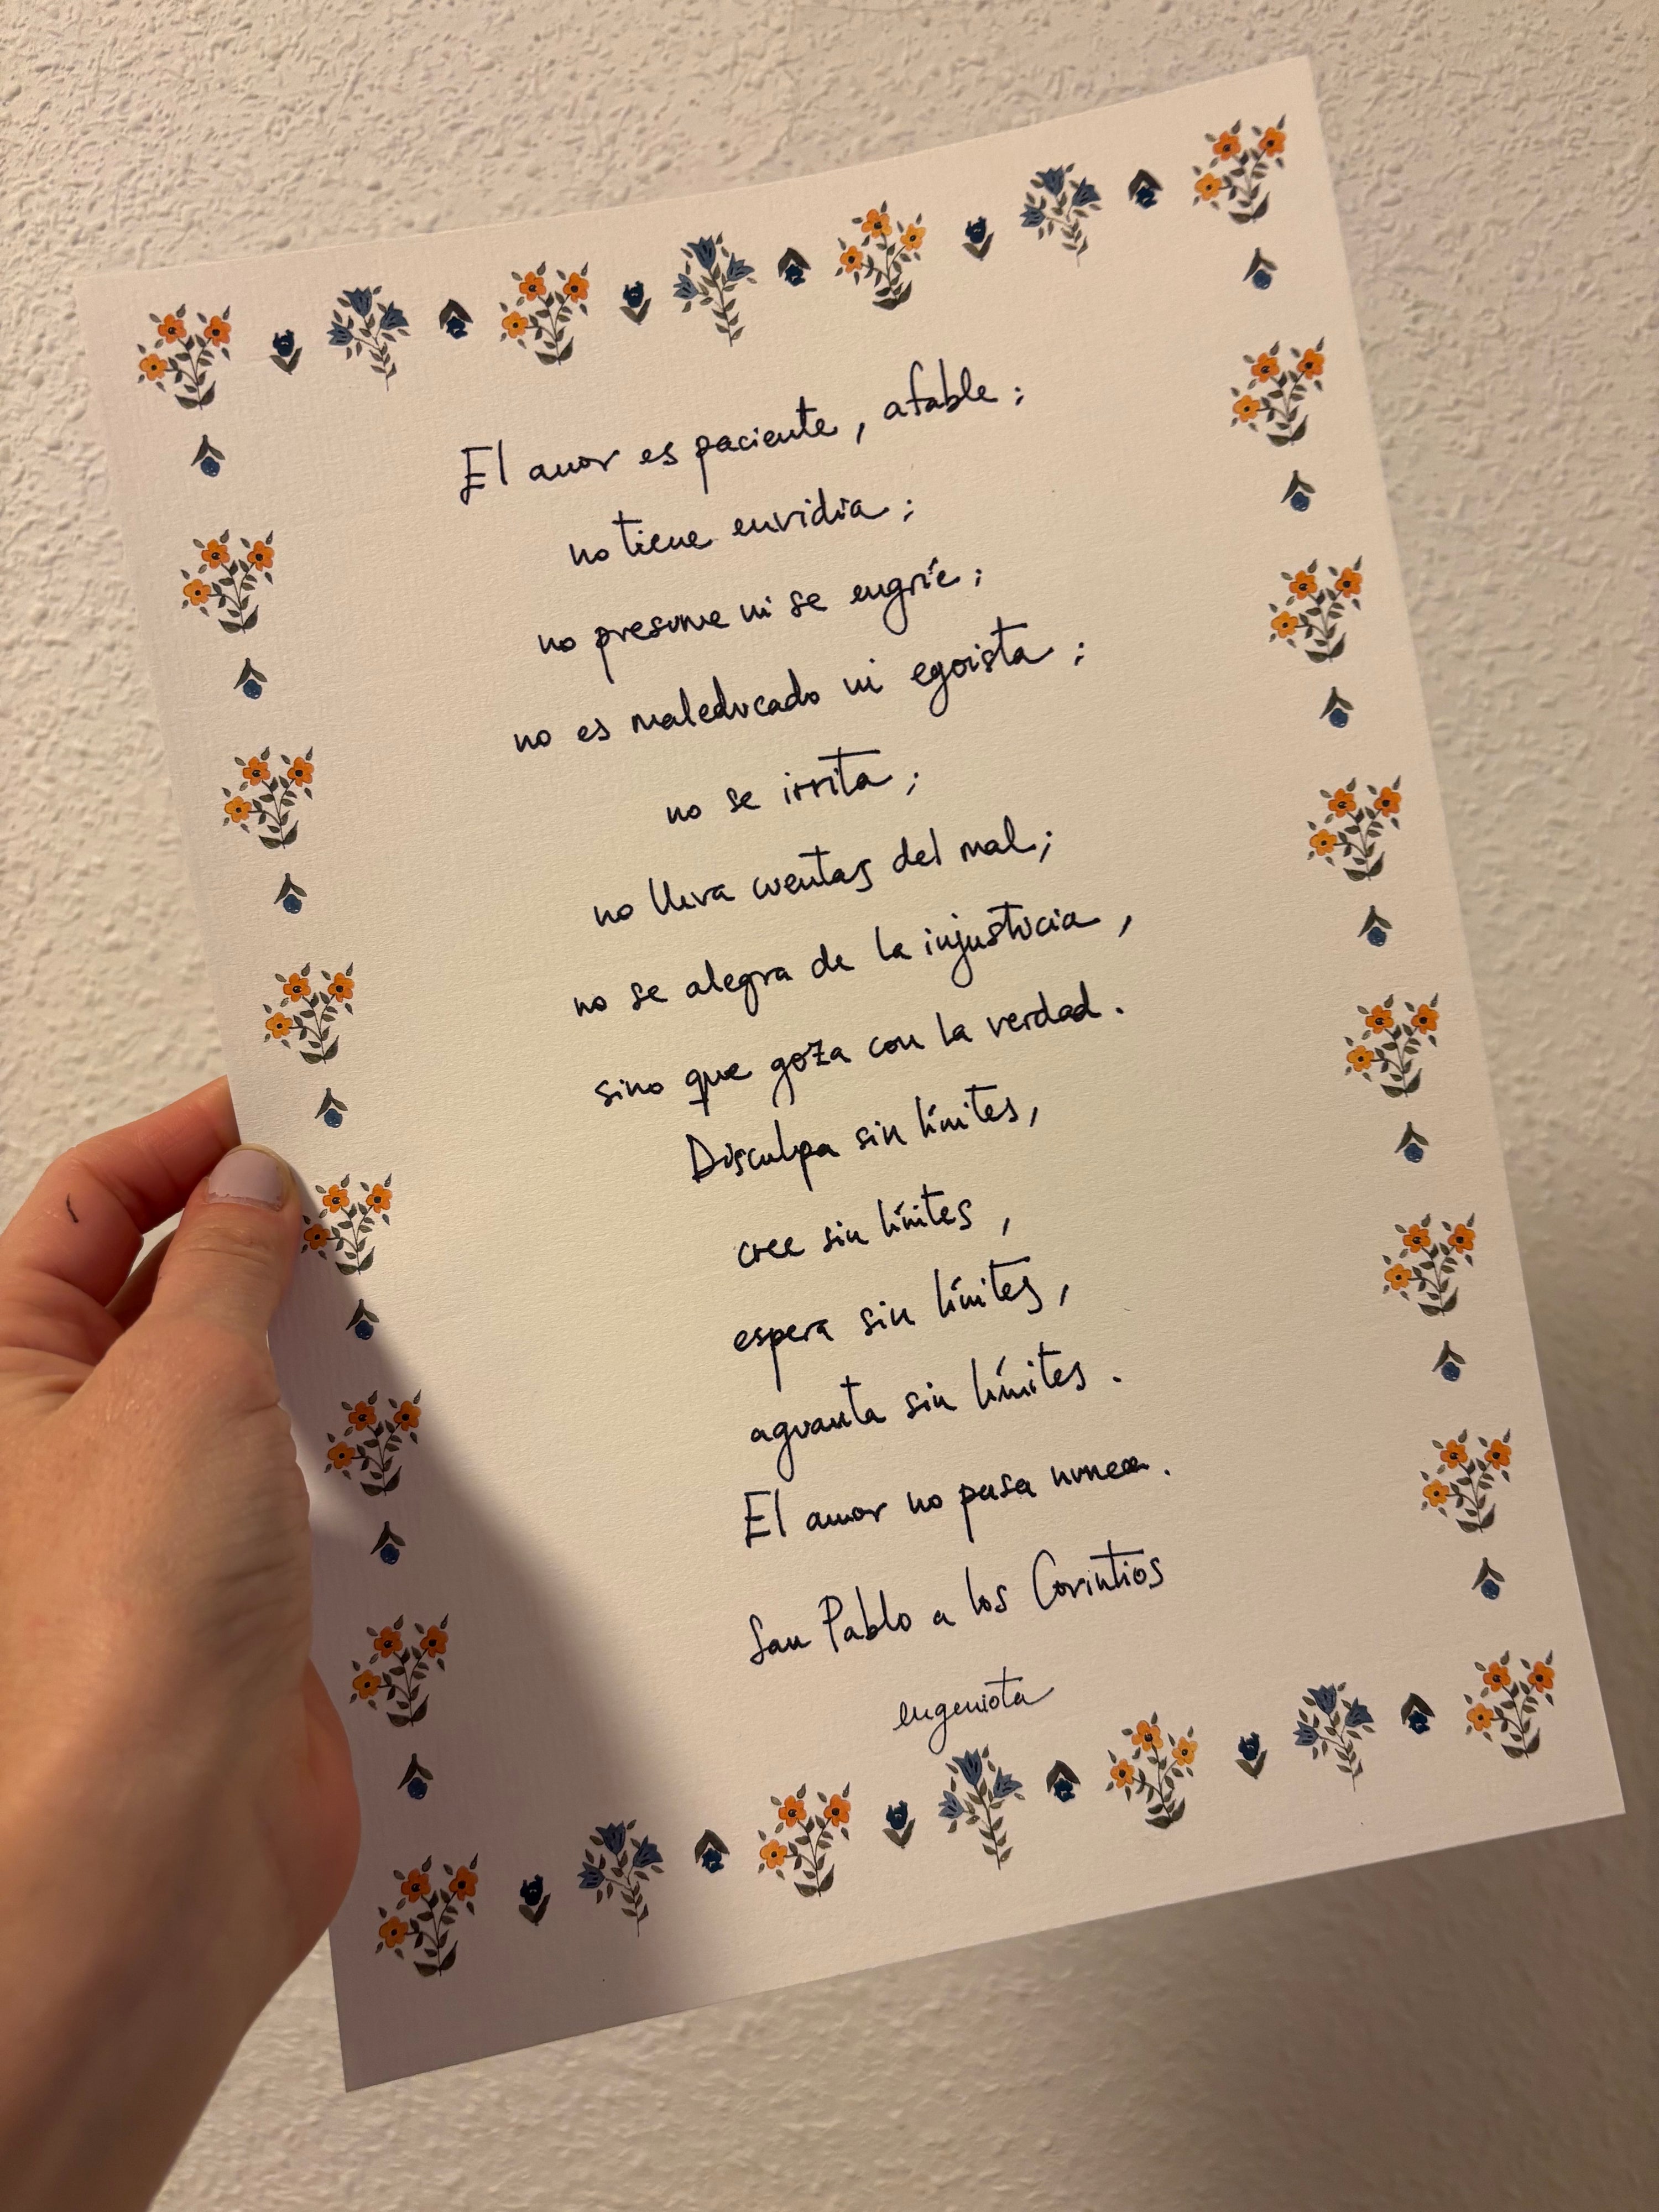 El amor es paciente, afable;
no tiene envidia;
no presume ni se engríe;
no es maleducado ni egoista;
no se irrita;
no lleva cuentas del mal;
no se alegra de la injusticia,
sino que goza con la verdad.
Disculpa sin límites,
cree sin límites,
espera sin límites,
aguanta sin límites.
El amor no pasa nunca.
San Pablo a los Corintios
eugeniota